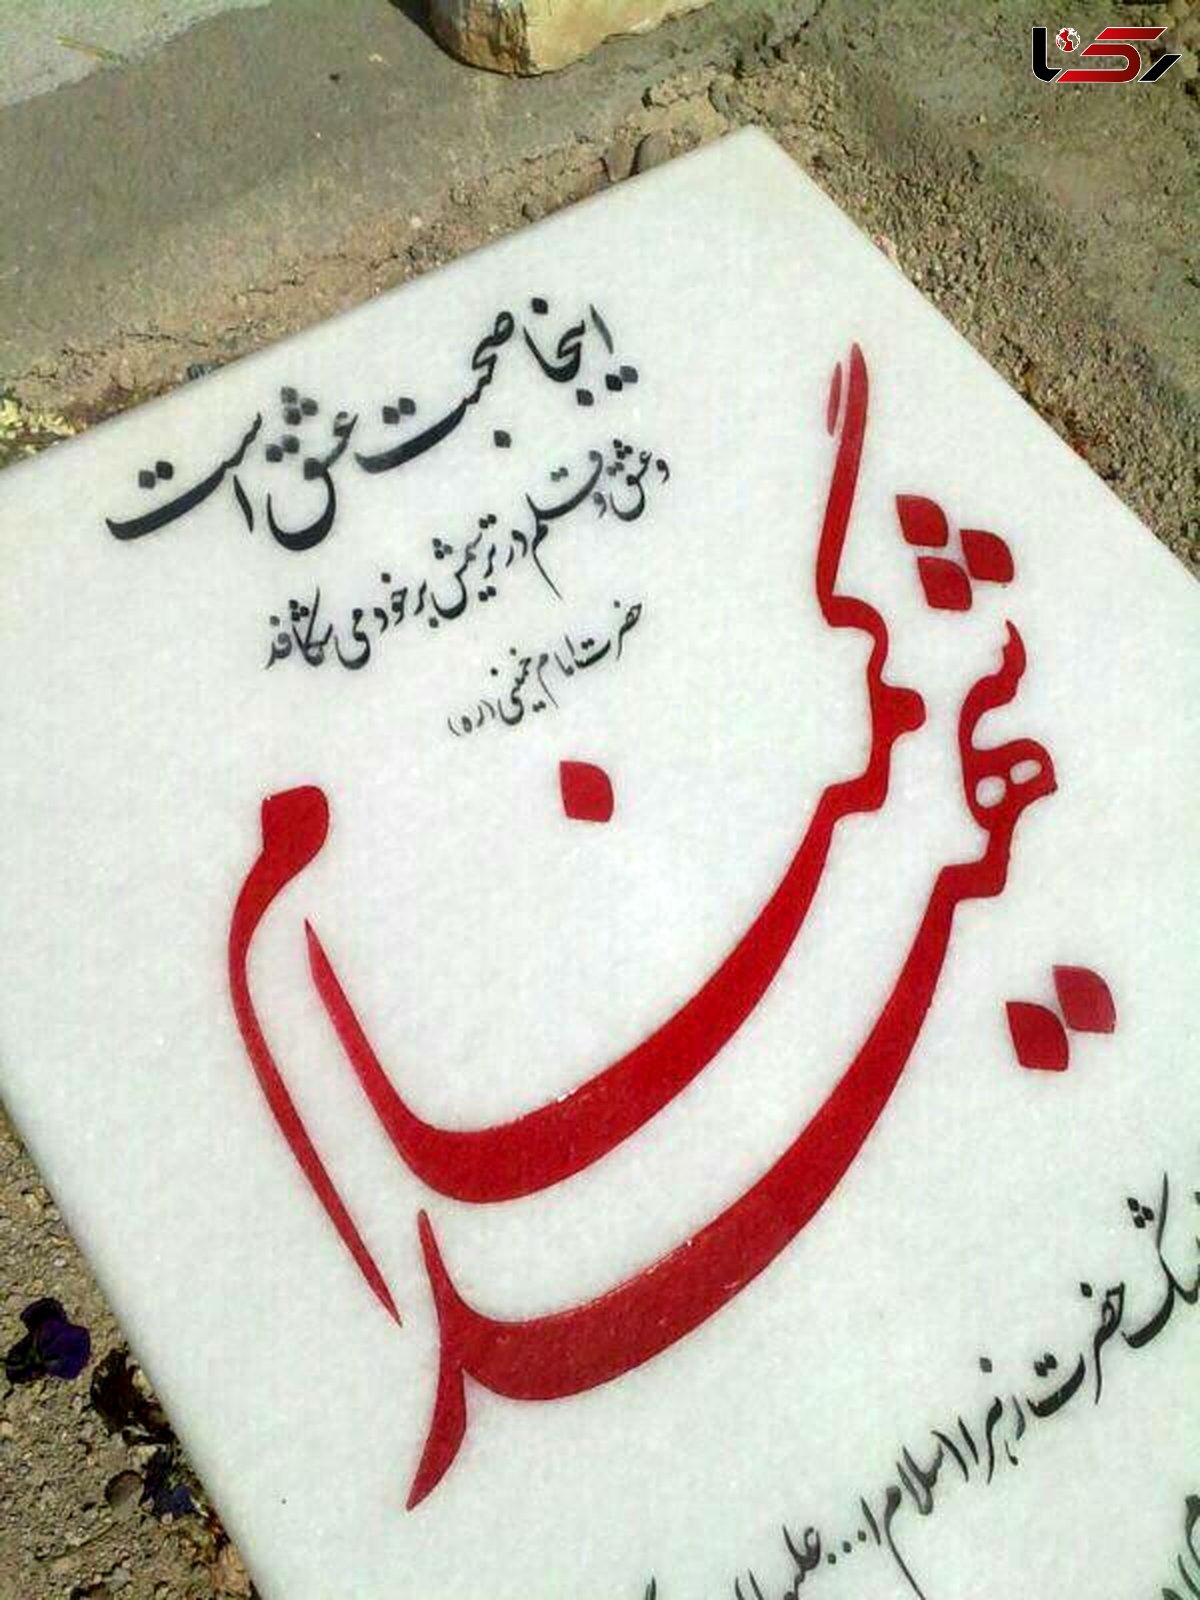 رکنا
اینجا صحبت عشق است
و عشق و قلم در ترسیمش بر خود می شکافد
حضرت امام خمینی (ره)
شهید
گمنام
حضرت زهرا اسلام ا...علیها